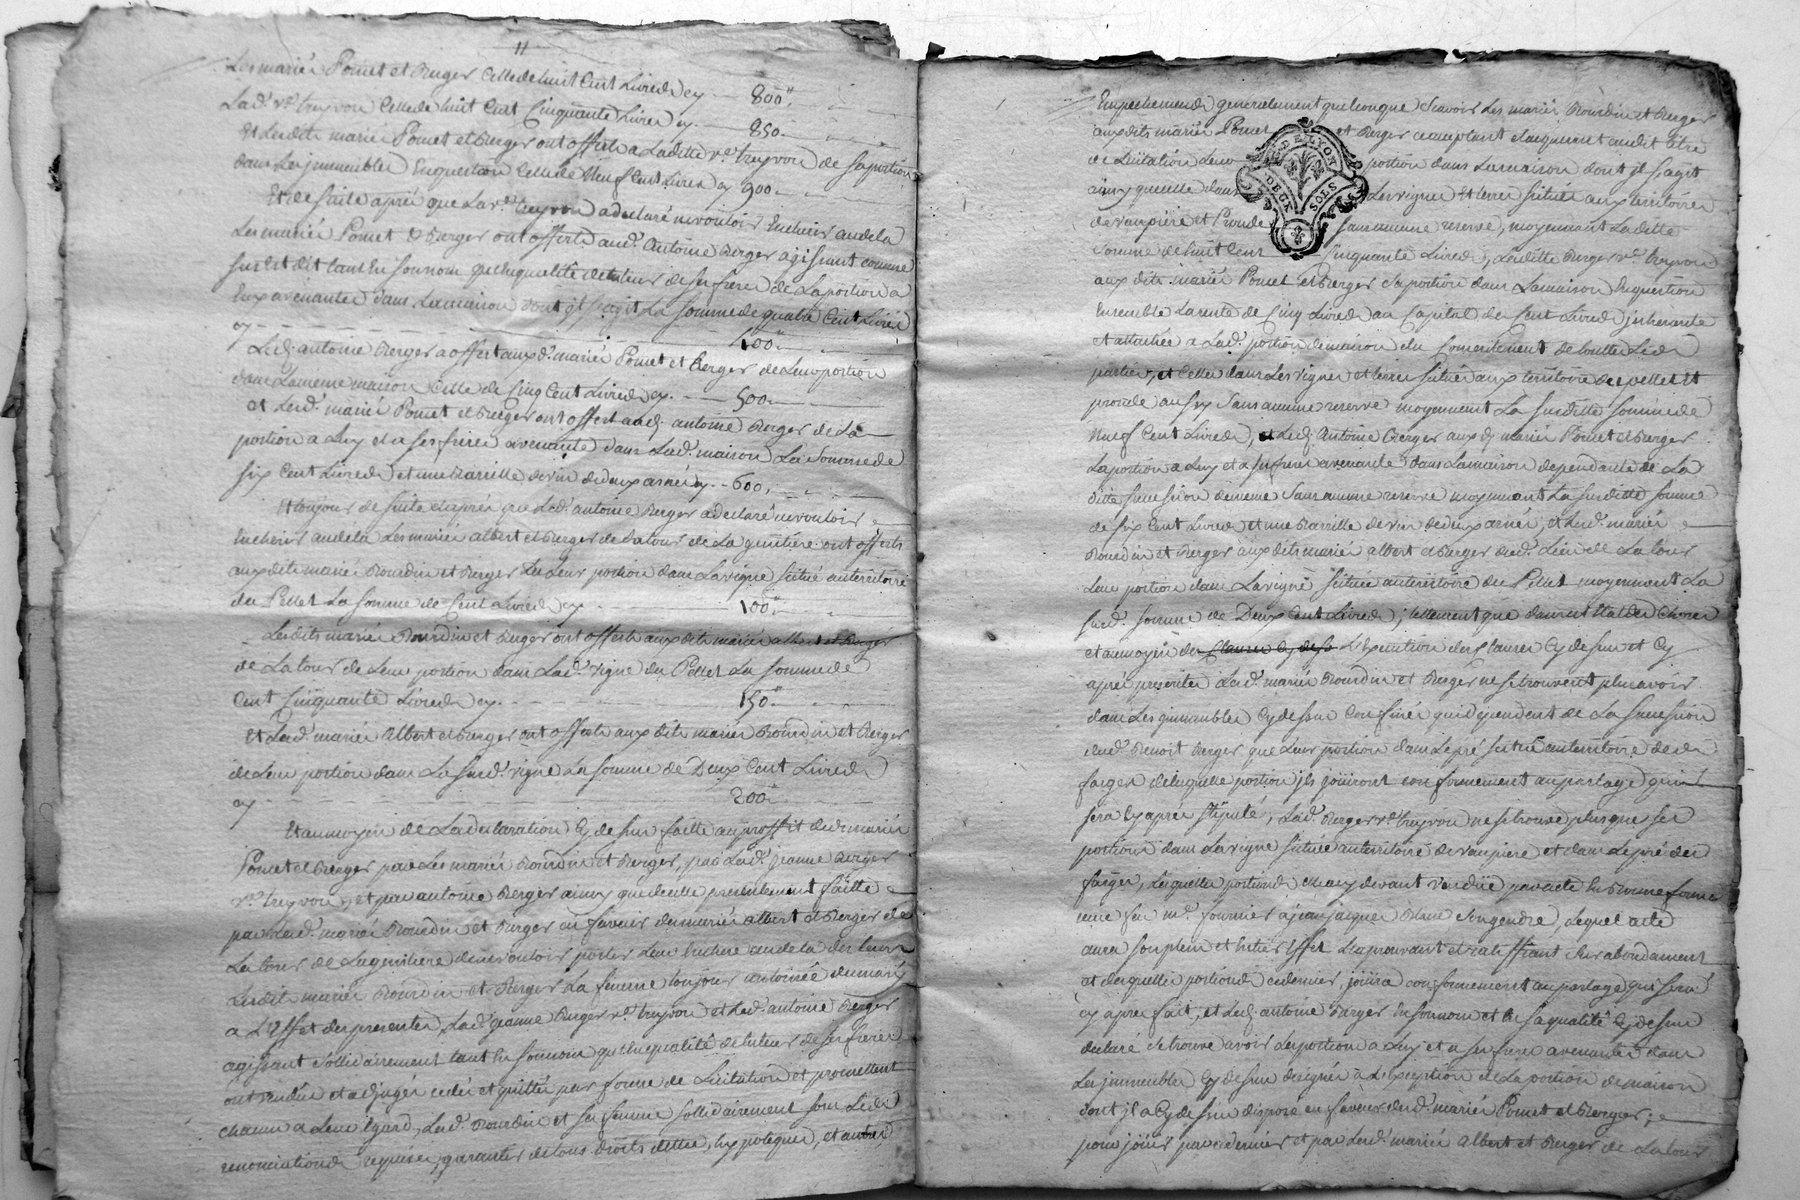 11
Les mariés Pomet et Berger Celle de huit Cent Livres cy 800"
Lad.e v.e treyvon Celle de huit Cent Cinquante Livres cy 850
Et lesdits mariés Pomet et Berger ont offerts a Laditte v.e treyvon de sa portion
dans Les immeubles En question Celle de Neuf Cent Livres cy 900
Et de suite aprés que La v.e treyvon a declaré ne vouloir Encherir audela
Les mariés Pomet & Berger ont offerts aud. Antoine Berger agissant comme
sus Est dit tant En son nom qu'En qualité de tuteur de ses freres de La portion a
Eux avenante dans La maison dont il s'agit La somme de quatre Cent Livres
cy 400
Led. antoine Berger a offert aux d. mariés Pomet et Berger de Leur portion
dans La meme maison Celle de Cinq Cent Livres cy 500
et Lesd. mariés Pomet et Berger ont offert aud. antoine Berger de La
portion a Luy et a ses freres avenante dans Lad. maison La Somme de
six Cent Livres et une Barrille de vin de deux asnées cy 600
Et toujours de suite et aprés que Led. antoine Berger a declaré ne vouloir
Encherir audela Les mariés albert et Berger de Latour de La genetiere ont offerts
aux dits mariés Bourdin et Berger de Leur portion dans La vigne située au territoire
du Pellet La somme de Cent Livres cy 100"
Lesdits mariés Bourdin et Berger ont offerts aux dits mariés albert et Berger
de Latour de Leur portion dans Lad. vigne du Pellet La somme de
Cent Cinquante Livres cy 150"
Et Lesd. mariés Albert et Berger ont offerts aux dits mariés Bourdin et Berger
de Leur portion dans La susd. vigne La somme de Deux Cent Livres
cy 200"
Et au moyen de La declaration Cy dessus faitte au proffit desd. mariés
Pomet et Berger par Les mariés Bourdin et Berger, par Lad. jeanne Berger
v.e treyvon, et par antoine Berger ainsy que de celle presentement faitte
par Lesd. mariés Bourdin et Berger en faveur des mariés albert et Berger de
La tour de La genetiere de ne vouloir porter Leur Enchere audela des leurs
Lesdits mariés Bourdin et Berger La femme toujours autorisée du mary
a L'Effet des presentes, Lad. jeanne Berger v.e treyvon et Led. antoine Berger
agissant solidairement tant En son nom qu'En qualité de tuteur de ses freres
ont vendu et adjugé cedé et quitté par forme de Licitation et promettent
chacun a Leur Egard, Lesd. Bourdin et sa femme sollidairement sous Les
renonciations requises, garantir de tous droits dettes, hypoteques, et autres
Empechemends generalement quelconque Scavoir Les mariés Bourdin et Berger
aux dits mariés Pomet et Berger acceptant et acquerant audit titre
de Licitation Leur portion dans La maison dont il s'agit
ainsy que celle dans Les vignes et terres situées aux territoires
de vaupiere et Pronde sans aucune reserve, moyennant Laditte
somme de huit Cent Cinquante Livres, Laditte Berger v.e treyvon
aux dits mariés Pomet et Berger sa portion dans La maison En question
Ensemble La rente de Cinq Livres au Capital de Cent Livres inherante
et attachée a Lad. portion de maison du Consentement de touttes Les
parties, et Celle dans Les vignes et terres situées aux territoires de pellet Et
pronde aussy sans aucune reserve moyennant La susditte somme de
Neuf Cent Livres, et Led. Antoine Berger aux d. mariés Pomet et Berger
La portion a Luy et a ses freres avenante dans La maison dependante de La
ditte succession de meme sans aucune reserve moyennant La susditte somme
de six Cent Livres et une Barrille de vin de deux asnées, et Lesd. mariés
Bourdin et Berger aux dits mariés albert et Berger dud. Lieu de La tour
Leur portion dans La vigne située au territoire du Pellet moyennant La
susd. somme de Deux Cent Livres; tellement que dans cet Etat des Choses
et au moyen des clauses cy dess L'Execution des clauses Cy dessus et Cy
aprés presentes Lesd. mariés Bourdin et Berger ne se trouvent plus avoir
dans Les immeubles Cy dessus Confinés qui dependent de La succession
dud. Benoit Berger que Leur portion dans Le pré situé au territoire des
farges de laquelle portion ils joüiront conformement au partage qui
sera Cy aprés stipulé, Lad. Berger v.e treyvon ne se trouve plus que ses
portions dans La vigne située au territoire de vaupiere et dans Le pré des
farges, Lesquelles portions Elle a cy devant vendüe par acte En Bonne forme
reçue feu m.e fournier a jean jacques Blanc son gendre, Lequel acte
aura son plein et Entier Effet L'aprouvant et ratiffiant En abondament
et desquelles portions ce dernier joüira conformement au partage qui sera
cy aprés fait, et Led. antoine Berger En son nom et En sa qualité Cy dessus
declaré se trouve avoir Les portions a Luy et a ses freres avenantes dans
Les immeubles Cy dessus designés a L'Exception de La portion de maison
dont il a Cy dessus disposé en faveur desd. mariés Pomet et Berger;
pour joüir par ce dernier et par Lesd. mariés Albert et Berger de La tour
G. DE LYON
DEUX SOLS